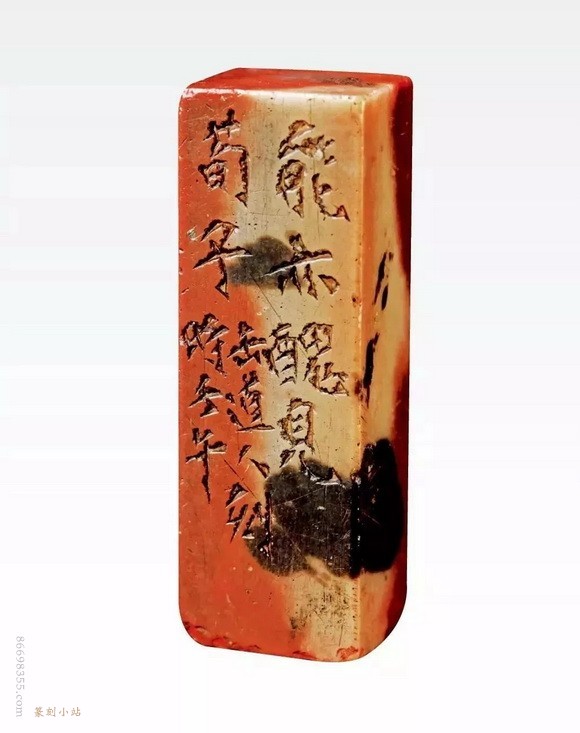 能亦醜見
荀子
缶道人刻
時壬午
86698355.com
篆刻小站